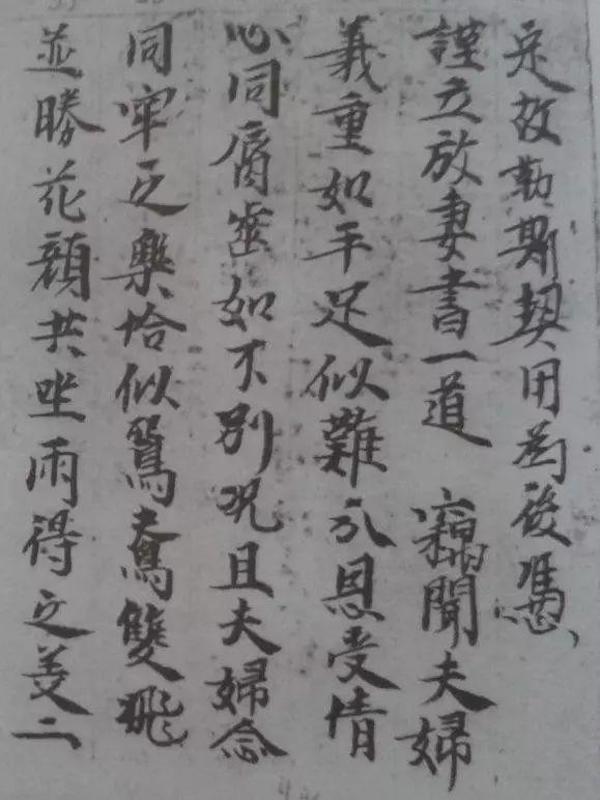 定故勒斯契用為後憑
謹立放妻書一道 竊聞夫婦
義重如手足似難分恩愛情
心同脣齒如不別況且夫婦念
同牢之樂恰似鴛鴦雙飛
並勝花顏共坐兩得之美二